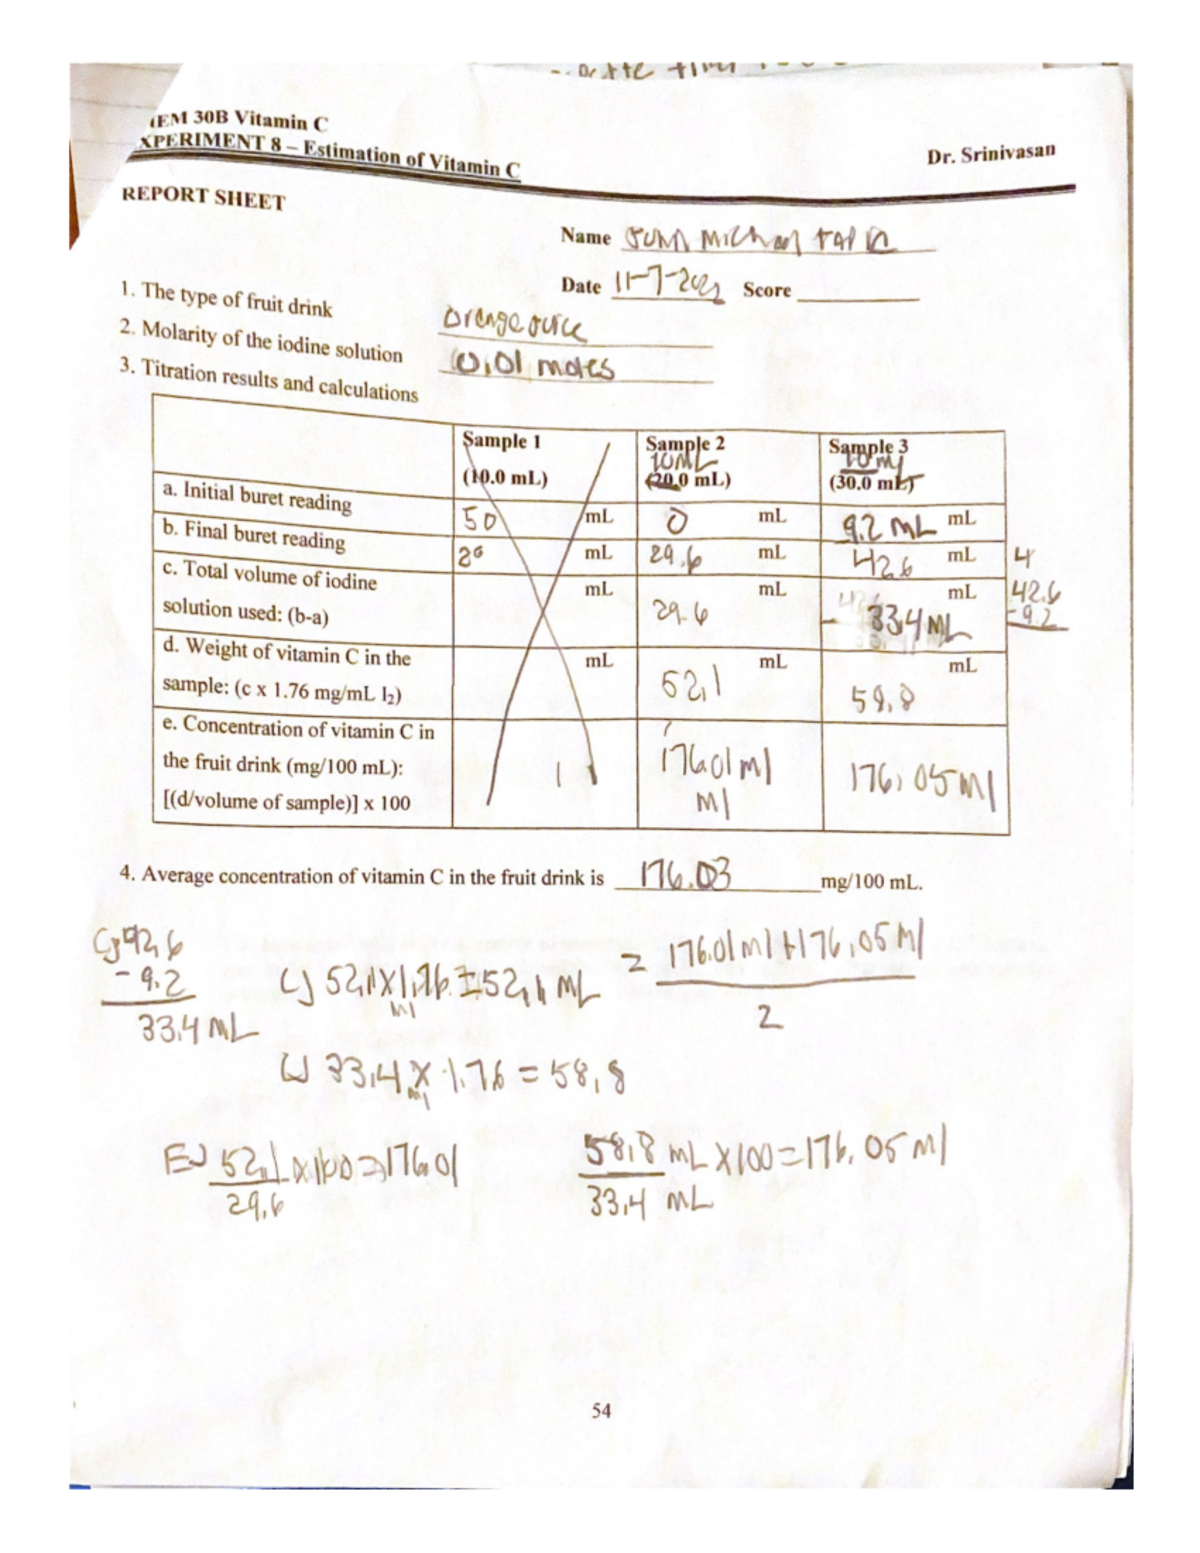 EM 30B Vitamin C
XPERIMENT 8 – Estimation of Vitamin C
Dr. Srinivasan
REPORT SHEET
Name
Date 11-7-2022 Score
1. The type of fruit drink orange juice
2. Molarity of the iodine solution 0.01 moles
3. Titration results and calculations
Sample 1 (10.0 mL) Sample 2 10ML (20.0 mL) Sample 3 10 ml (30.0 mL)
a. Initial buret reading 50 mL 0 mL 9.2 ML mL
b. Final buret reading 20 mL 29.6 mL 42.6 mL 4
c. Total volume of iodine mL mL mL 42.6
solution used: (b-a) 29.6 - 33.4 ML -9.2
d. Weight of vitamin C in the mL mL mL
sample: (c x 1.76 mg/mL I₂) 52.1 58.8
e. Concentration of vitamin C in
the fruit drink (mg/100 mL): 176.01 ml 176.05 Ml
[(d/volume of sample)] x 100 Ml
4. Average concentration of vitamin C in the fruit drink is 176.03 mg/100 mL.
C) 42.6
- 9.2
33.4 ML
C) 52.1 X 1.76 = 52.1 ML
ml
= 176.01 ml + 176.05 Ml
2
C) 33.4 X 1.76 = 58.8
ml
E) 52.1 X 100 = 176.01
29.6
58.8 mL X 100 = 176.05 Ml
33.4 mL
54